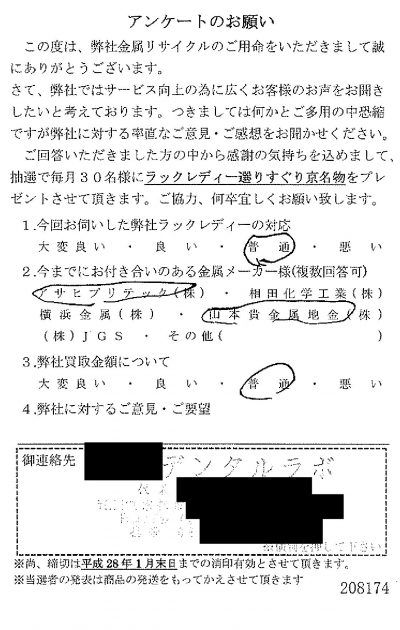 アンケートのお願い
この度は、弊社金属リサイクルのご用命をいただきまして誠
にありがとうございます。
さて、弊社ではサービス向上の為に広くお客様のお声をお聞き
したいと考えております。つきましては何かとご多用の中恐縮
ですが弊社に対する率直なご意見・ご感想をお聞かせください。
ご回答いただきました方の中から感謝の気持ちを込めまして、
抽選で毎月30名様にラックレディー選りすぐり京名物をプレ
ゼントさせて頂きます。ご協力、何卒宜しくお願い致します。
1.今回お伺いした弊社ラックレディーの対応
大変良い ・ 良い ・ 普通 ・ 悪い
2.今までにお付き合いのある金属メーカー様(複数回答可)
アサヒプリテック(株) ・ 相田化学工業(株)
横浜金属(株) ・ 山本貴金属地金(株)
(株)JGS ・ その他( )
3.弊社買取金額について
大変良い ・ 良い ・ 普通 ・ 悪い
4.弊社に対するご意見・ご要望
御連絡先
デンタルラボ
※尚、締切は平成28年1月末日までの消印有効とさせて頂きます。
※当選者の発表は商品の発送をもってかえさせて頂きます
208174